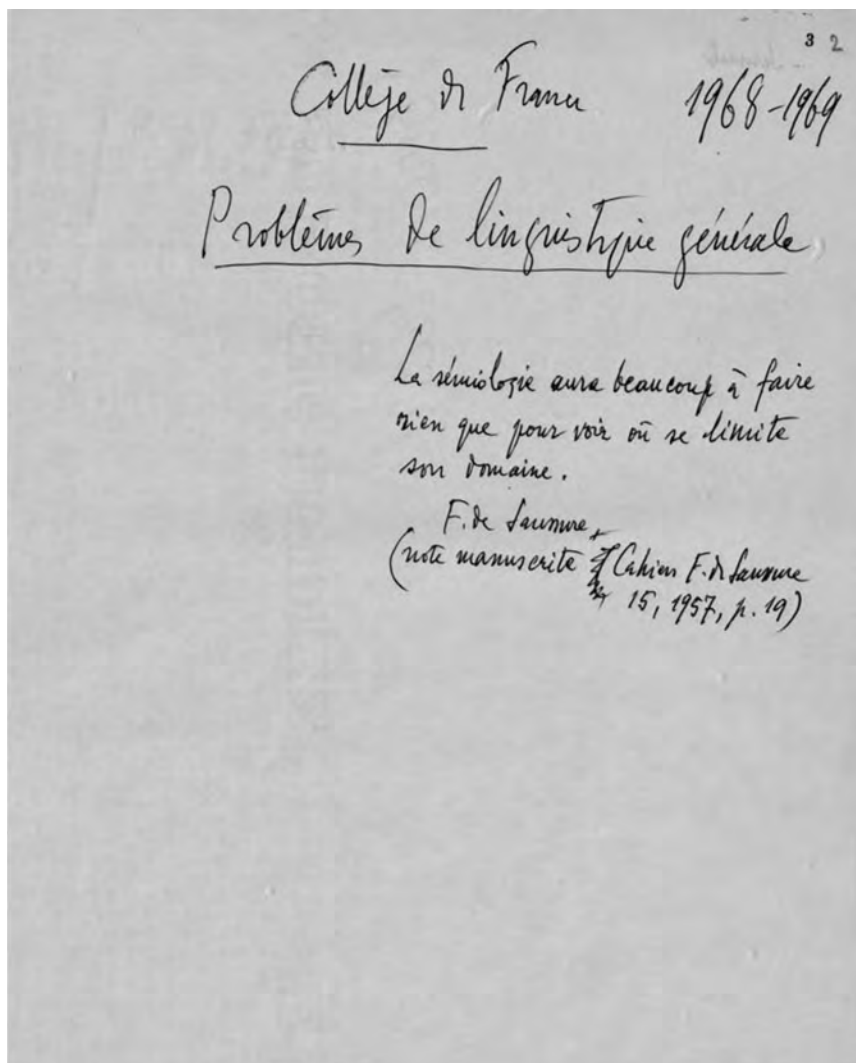 3 2
Collège de France 1968-1969
Problèmes de linguistique générale
La sémiologie aura beaucoup à faire
rien que pour voir où se limite
son domaine.
F. de Saussure
(note manuscrite Cahiers F. de Saussure
15, 1957, p. 19)